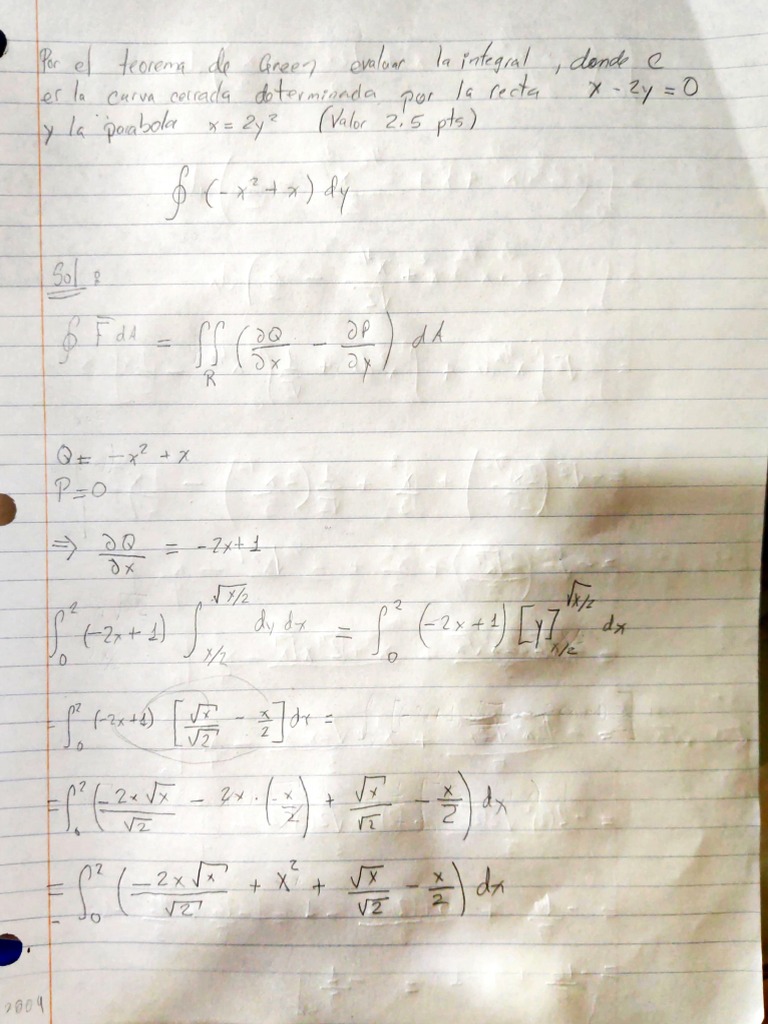 Por el teorema de Green evaluar la integral, donde C
es la curva cerrada determinada por la recta x - 2y = 0
y la parabola x = 2y² (Valor 2.5 pts)
∮ (-x² + x) dy
Sol:
∮ F̄ dA = ∬_R (∂Q/∂x - ∂P/∂y) dA
Q = -x² + x
P = 0
⇒ ∂Q/∂x = -2x+1
∫₀² (-2x+1) ∫_{x/2}^{√x/2} dy dx = ∫₀² (-2x+1) [y]_{x/2}^{√x/2} dx
= ∫₀² (-2x+1) [√x/√2 - x/2] dx =
= ∫₀² (-2x√x/√2 - 2x · (-x/2) + √x/√2 - x/2) dx
= ∫₀² (-2x√x/√2 + x² + √x/√2 - x/2) dx